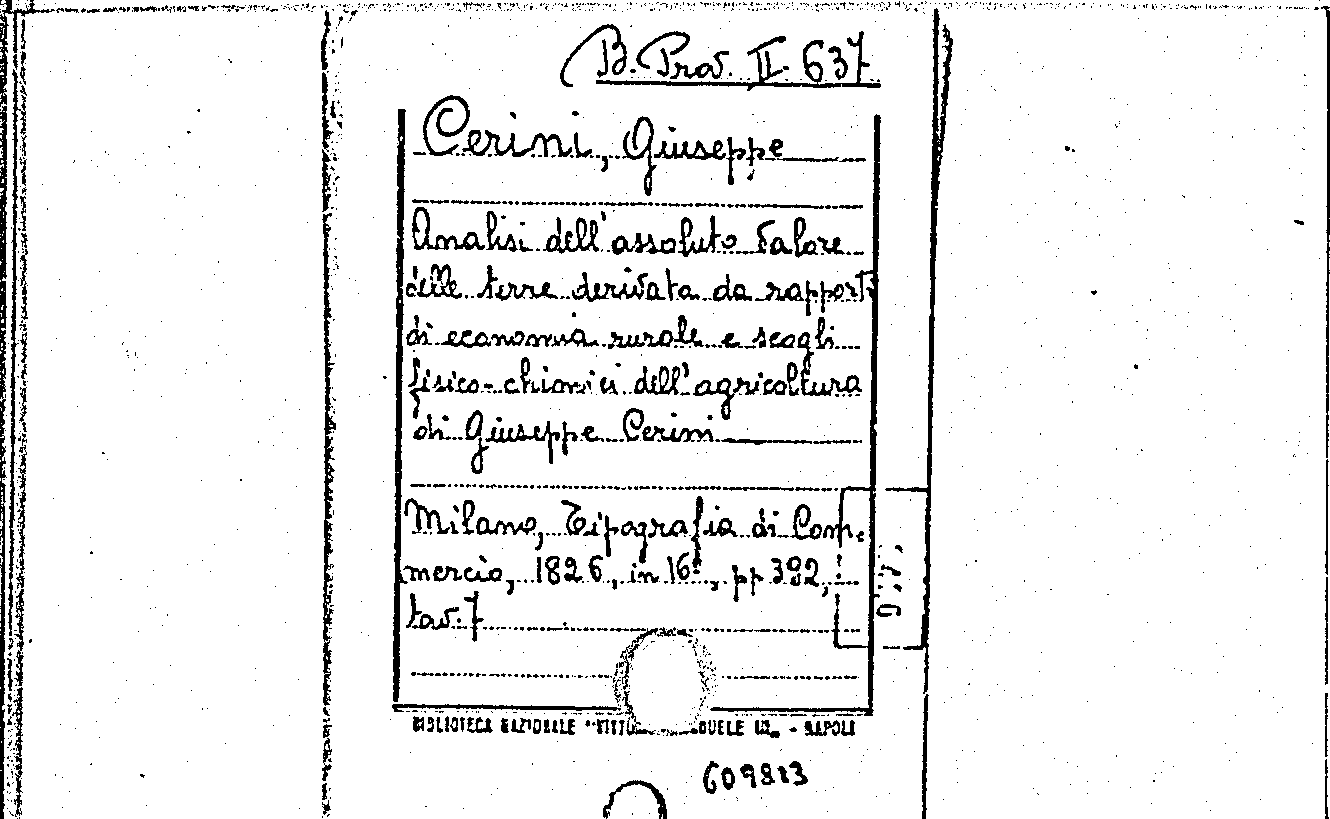 B. Prov. II. 637
Cerini, Giuseppe
Analisi dell'assoluto valore
delle terre derivata da rapporti
di economia rurale e scogli
fisico-chimici dell'agricoltura
di Giuseppe Cerini
Milano, Tipografia di Com-
mercio, 1826, in 16º, pp 392,
tav. 7
BIBLIOTECA NAZIONALE "VITTO UELE III" - NAPOLI
609813